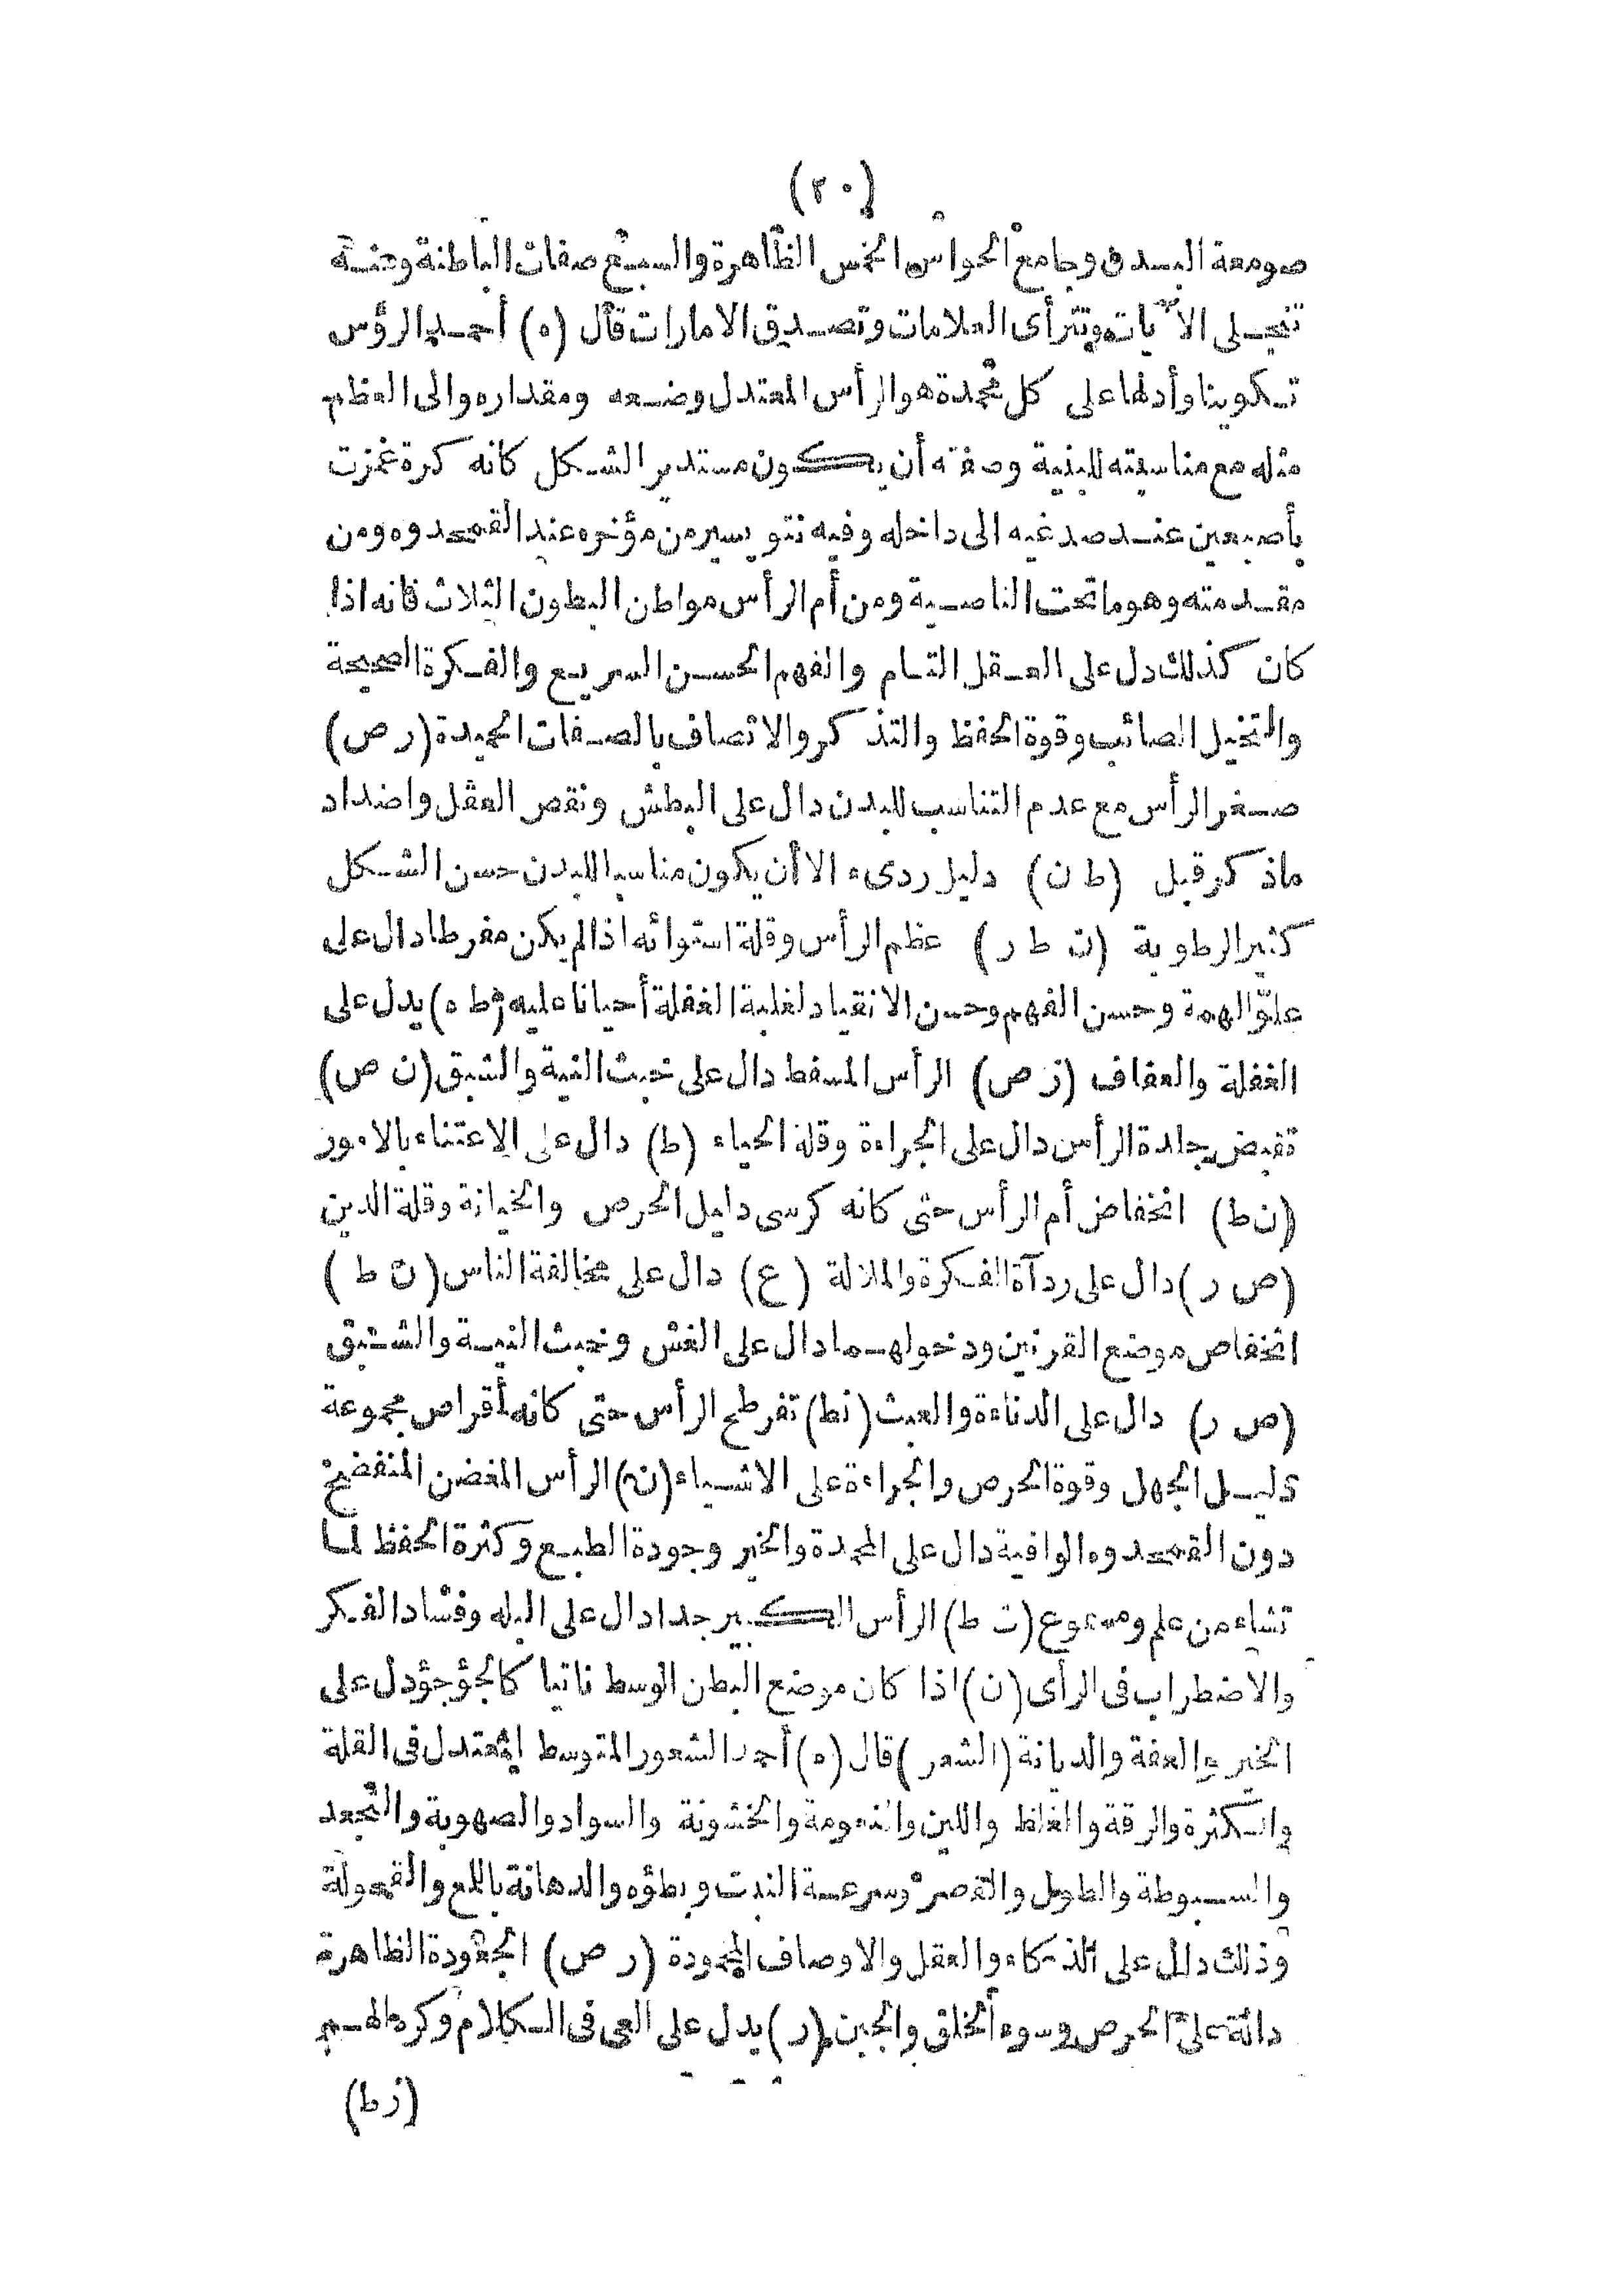 (٢٠)
صومعة البدن وجامع الحواس الخمس الظاهرة والسبع صفات الباطنة ومنه
تنجلى الآيات وتتراأى العلامات وتصديق الامارات قال (ه) أحمد الرؤس
تكوينا وأدلها على كل محمدة هو الرأس المعتدل وضعه ومقداره والى العظم
مثله مع مناسبته للبنية وصفته أن يكون مستدير الشكل كانه كرة غمزت
بأصبعين عند صدغيه الى داخله وفيه نتو يسير من مؤخره عند القمحدوه ومن
مقدمته وهو ما تحت الناصية ومن أم الرأس مواطن البطون الثلاث فانه اذا
كان كذلك دل على العقل التام والفهم الحسن السريع والفكرة الصحيحة
والتخيل الصائب وقوة الحفظ والتذكر والاتصاف بالصفات الحميدة (ر ص)
صغر الرأس مع عدم التناسب للبدن دال على البطش ونقص العقل واضداد
ماذكر قبل (ط ن) دليل ردىء الا أن يكون مناسبا للبدن حسن الشكل
كثير الرطوبة (ت ط ر) عظم الرأس وقلة استوائه اذا لم يكن مفرطا دال على
علو الهمة وحسن الفهم وحسن الانقياد لغلبة الغفلة أحيانا عليه (ط ه) يدل على
الغفلة والعفاف (ز ص) الرأس المسفط دال على خبث النية والشبق (ن ص)
تقبض جلدة الرأس دال على الجراءة وقلة الحياء (ط) دال على الاعتناء بالامور
(ن ط) انخفاض أم الرأس حتى كانه كرسى دليل الحرص والخيانة وقلة الدين
(ص ر) دال على ردآة الفكرة والملالة (ع) دال على مخالفة الناس (ن ط)
انخفاص موضع القرنين ودخولهما دال على الغش وخبث النية والشبق
(ص ر) دال على الدناءة والعبث (نط) تفرطح الرأس حتى كانه أقراص مجموعة
دليل الجهل وقوة الحرص والجراءة على الاشياء (ن) الرأس المغضن المنفضخ
دون القمحدوه الوافية دال على المحمدة والخير وجودة الطبع وكثرة الحفظ لما
تشاء من علم ومسموع (ت ط) الرأس الكبير جدا دال على البله وفساد الفكر
والاضطراب فى الرأى (ن) اذا كان موضع البطن الوسط ناتيا كالجؤجؤ دل على
الخير والعفة والديانة (الشعر) قال (ه) أحمد الشعور المتوسط المعتدل فى القلة
والكثرة والرقة والغلظ واللين والنعومة والخشونة والسواد والصهوبة والتجعد
والسبوطة والطول والقصر وسرعة النبت وبطؤه والدهانة باللمع والقحولة
وذلك دال على الذكاء والعقل والاوصاف المحمودة (ر ص) الجعودة الظاهرة
دالة على الحرص وسوء الخلق والجبن (ر) يدل على العى فى الكلام وكره الهم
(ز ط)